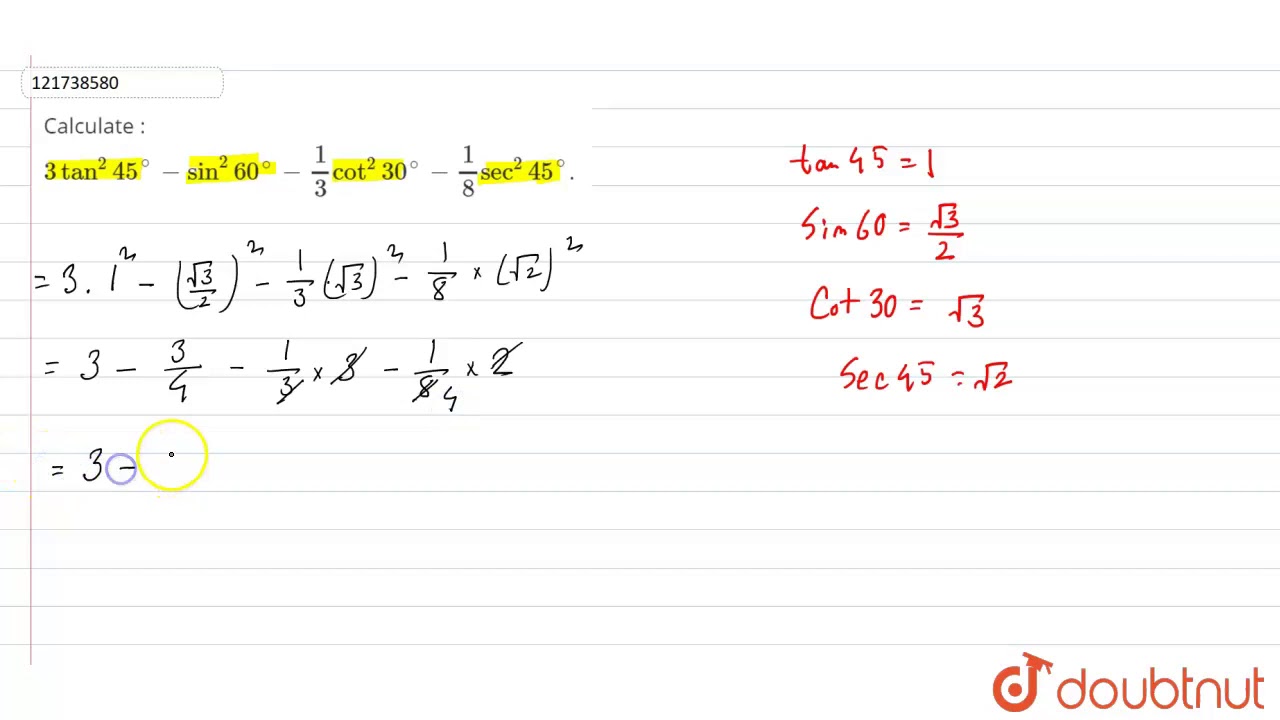 121738580
Calculate :
3 tan² 45° − sin² 60° − 1/3 cot² 30° − 1/8 sec² 45° .
= 3 . 1² − (√3/2)² − 1/3 (√3)² − 1/8 × (√2)²
= 3 − 3/4 − 1/3 × 3 − 1/8 4 × 2
= 3 −
tan 45 = 1
Sin 60 = √3/2
Cot 30 = √3
Sec 45 = √2
doubtnut